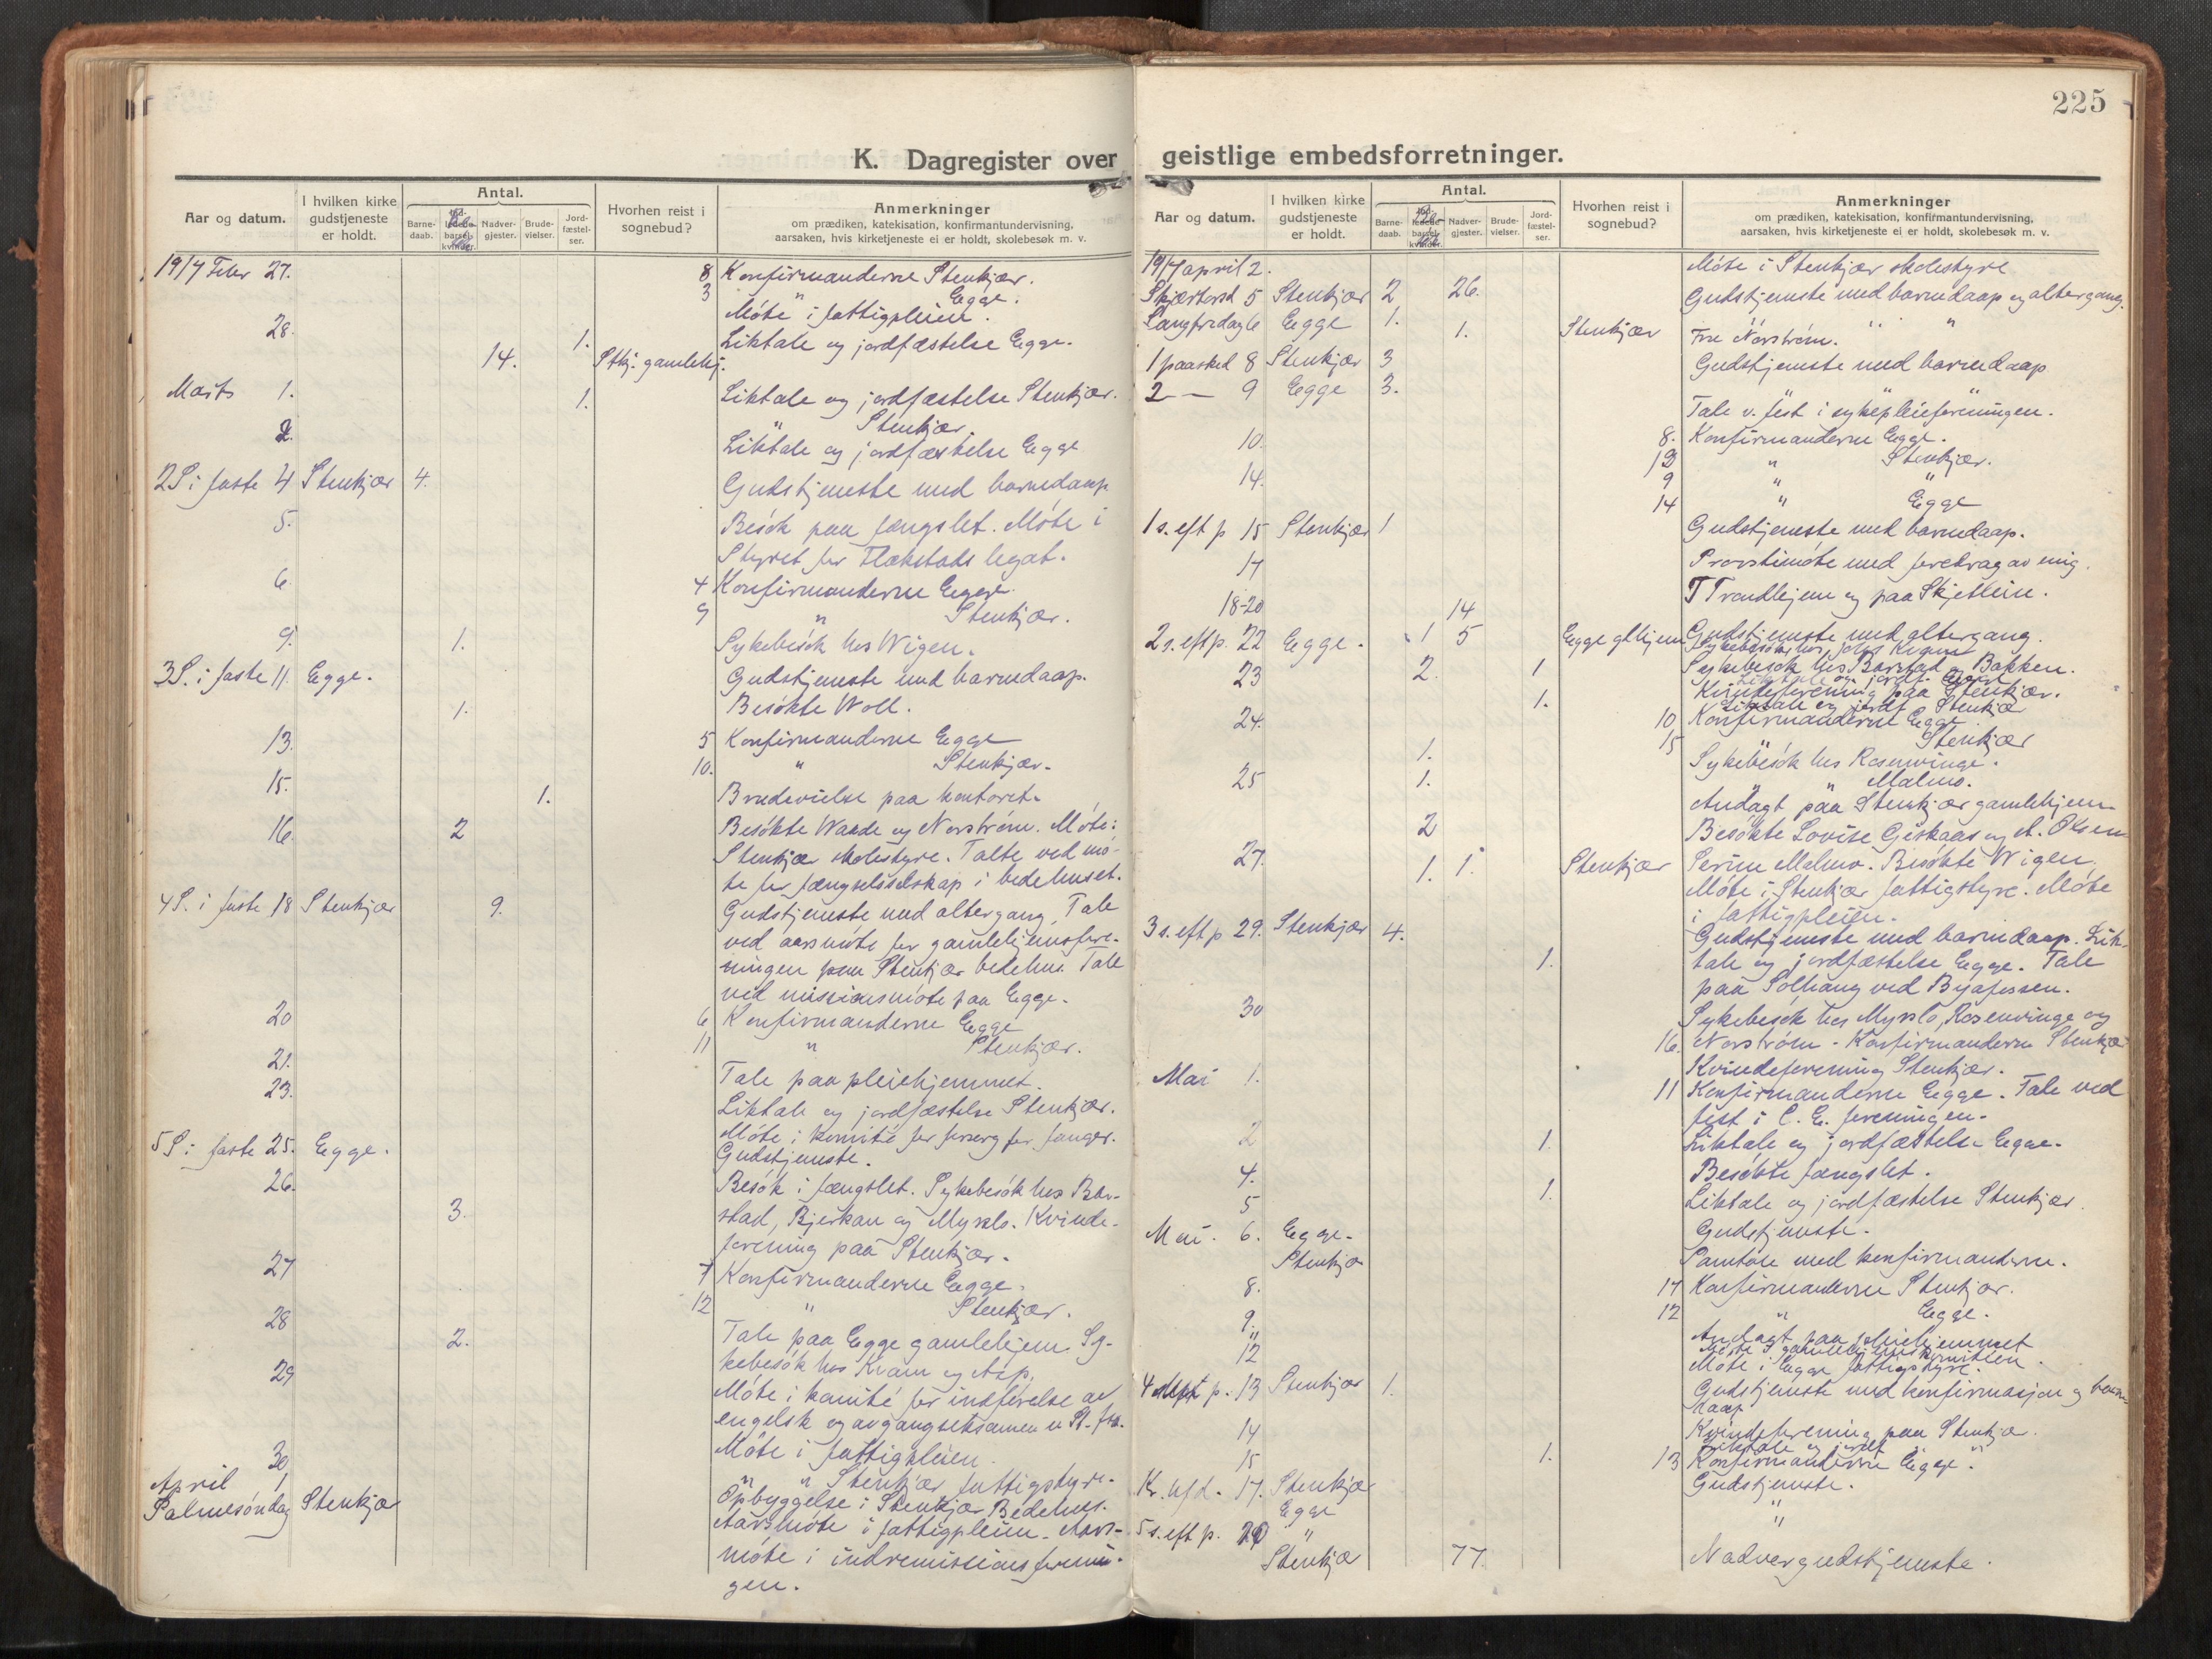 225
K. Dagregister over geistlige embedsforretninger.
Aar og datum.
I hvilken kirke gudstjeneste er holdt.
Antal.
Barne-daab.
Nadver-gjester.
Brude-vielser.
Jord-fæstel-ser.
Hvorhen reist i sognebud?
Anmerkninger
om prædiken, katekisation, konfirmantundervisning,
aarsaken, hvis kirketjeneste ei er holdt, skolebesøk m. v.
1917 Febr 27. 8 Konfirmanderne Stenkjær.
3 " Egge.
Möte i fattigpleien.
28. 1. Liktale og jordfæstelse Egge.
14. Stkj. gamlehj.
Marts 1. 1. Liktale og jordfæstelse Stenkjær.
" Stenkjær.
2. Liktale og jordfæstelse Egge
2 S. i faste 4 Stenkjær 4. Gudstjeneste med barnedaap
5. Besök paa fængslet. Möte i
Styret for Flekstads legat.
6. 4 Konfirmanderne Egge.
9 " Stenkjær.
9. 1. Sykebesök hos Wigen.
3 S. i faste 11. Egge. Gudstjeneste med barnedaap.
1. Besökte Woll.
13. 5 Konfirmanderne Egge
10. " Stenkjær.
15. 1. Brudevielse paa kontoret.
16. 2 Besökte Waade og Norström. Möte i
Stenkjær skolestyre. Talte ved mö-
te for fængselsselskap i bedehuset.
4 S. i faste 18 Stenkjær 9. Gudstjeneste med altergang. Tale
ved aarsmöte for gamlehjemsfore-
ningen paa Stenkjær bedehus. Tale
ved missionsmöte paa Egge.
20 6 Konfirmanderne Egge
11 " Stenkjær.
21. Tale paa pleiehjemmet.
23. Liktale og jordfæstelse Stenkjær.
Möte i komité for forsorg for fanger.
5 S. i faste 25. Egge. Gudstjeneste.
26. Besök i fængslet. Sykebesök hos Bar-
3. stad, Bjerkan og Myrslo. Kvinde-
forening paa Stenkjær.
27 7 Konfirmanderne Egge.
12 " Stenkjær.
28 2. Tale paa Egge gamlehjem. Sy-
kebesök hos Kvam og Aap.
29 Möte i komité for indförelse av
engelsk og avgangseksamen v. St. fsk.
Möte i fattigpleien.
30 " " Stenkjær fattigstyre.
April 1 Opbyggelse i Stenkjær Bedehus.
Palmesöndag Stenkjær Aarsmöte i fattigpleien. Aars-
möte i indremissionsforenin-
gen.
Aar og datum.
I hvilken kirke gudstjeneste er holdt.
Antal.
Barne-daab.
Nadver-gjester.
Brude-vielser.
Jord-fæstel-ser.
Hvorhen reist i sognebud?
Anmerkninger
om prædiken, katekisation, konfirmantundervisning,
aarsaken, hvis kirketjeneste ei er holdt, skolebesøk m. v.
1917 april 2. Möte i Stenkjær skolestyre
Skjærtorsd 5 Stenkjær 2 26. Gudstjeneste med barnedaap og altergang.
Langfredag 6 Egge 1. " "
1. Stenkjær Fru Norström.
1 paasked 8 Stenkjær 3 Gudstjeneste med barnedaap
2 — 9 Egge 3. " "
Tale v. fest i sykepleieforeningen.
10. 8. Konfirmanderne Egge.
13 " Stenkjær.
14. 9 " "
14 " Egge
1 s. eft p 15 Stenkjær 1 Gudstjeneste med barnedaap.
17 Provstimöte med foredrag av mig.
18-20 T Trondhjem og paa Skjetlein.
14
2 s. eft p. 22 Egge. 1 5 Egge glhjem Gudstjeneste med altergang.
Sykebesök hos Johs Kvam
23 2. 1 Sykebesök hos Barstad og Bakken.
Liktale og jordf. Egge
Kvindeforening paa Stenkjær.
1. Liktale og jordf. Stenkjær
24. 10 Konfirmanderne Egge.
15 " Stenkjær
1. Sykebesök hos Rosenvinge.
25 1. " " Malmo.
Andagt paa Stenkjær gamlehjem
2 Besökte Lovise Giskaas og A. Olsen
27. 1. 1. Stenkjær Serine Malmo. Besökte Wigen.
Möte i Stenkjær fattigstyre. Möte
i fattigpleien.
3 s. eft p 29. Stenkjær 4. Gudstjeneste med barnedaap. Lik-
1. tale og jordfæstelse Egge. Tale
paa Solhaug ved Byafossen.
30 Sykebesök hos Myrslo, Rosenvinge og
16. Norström. Konfirmanderne Stenkjær
Kvindeforening Stenkjær.
Mai 1. 11 Konfirmanderne Egge. Tale ved
fest i C. E. foreningen.
2 1. Liktale og jordfæstelse Egge.
4. Besökte fængslet.
5 1. Liktale og jordfæstelse Stenkjær.
Mai. 6. Egge. Gudstjeneste.
Stenkjær Samtale med konfirmanderne.
8. 17 Konfirmanderne Stenkjær.
12 " Egge.
9. Andagt paa pleiehjemmet
11 Möte i gamlehjemskomiteen.
12 Möte i Egge fattigstyre.
4 s. eft p. 13 Stenkjær 1. Gudstjeneste med konfirmasjon og barne-
daap
14 Kvindeforening paa Stenkjær.
1. Liktale og jordf. " "
15 13 Konfirmanderne Egge.
Kr. hfd. 17. Stenkjær Gudstjeneste.
Egge "
5 s. eft p. 20 "
Stenkjær 77. Nadvergudstjeneste.